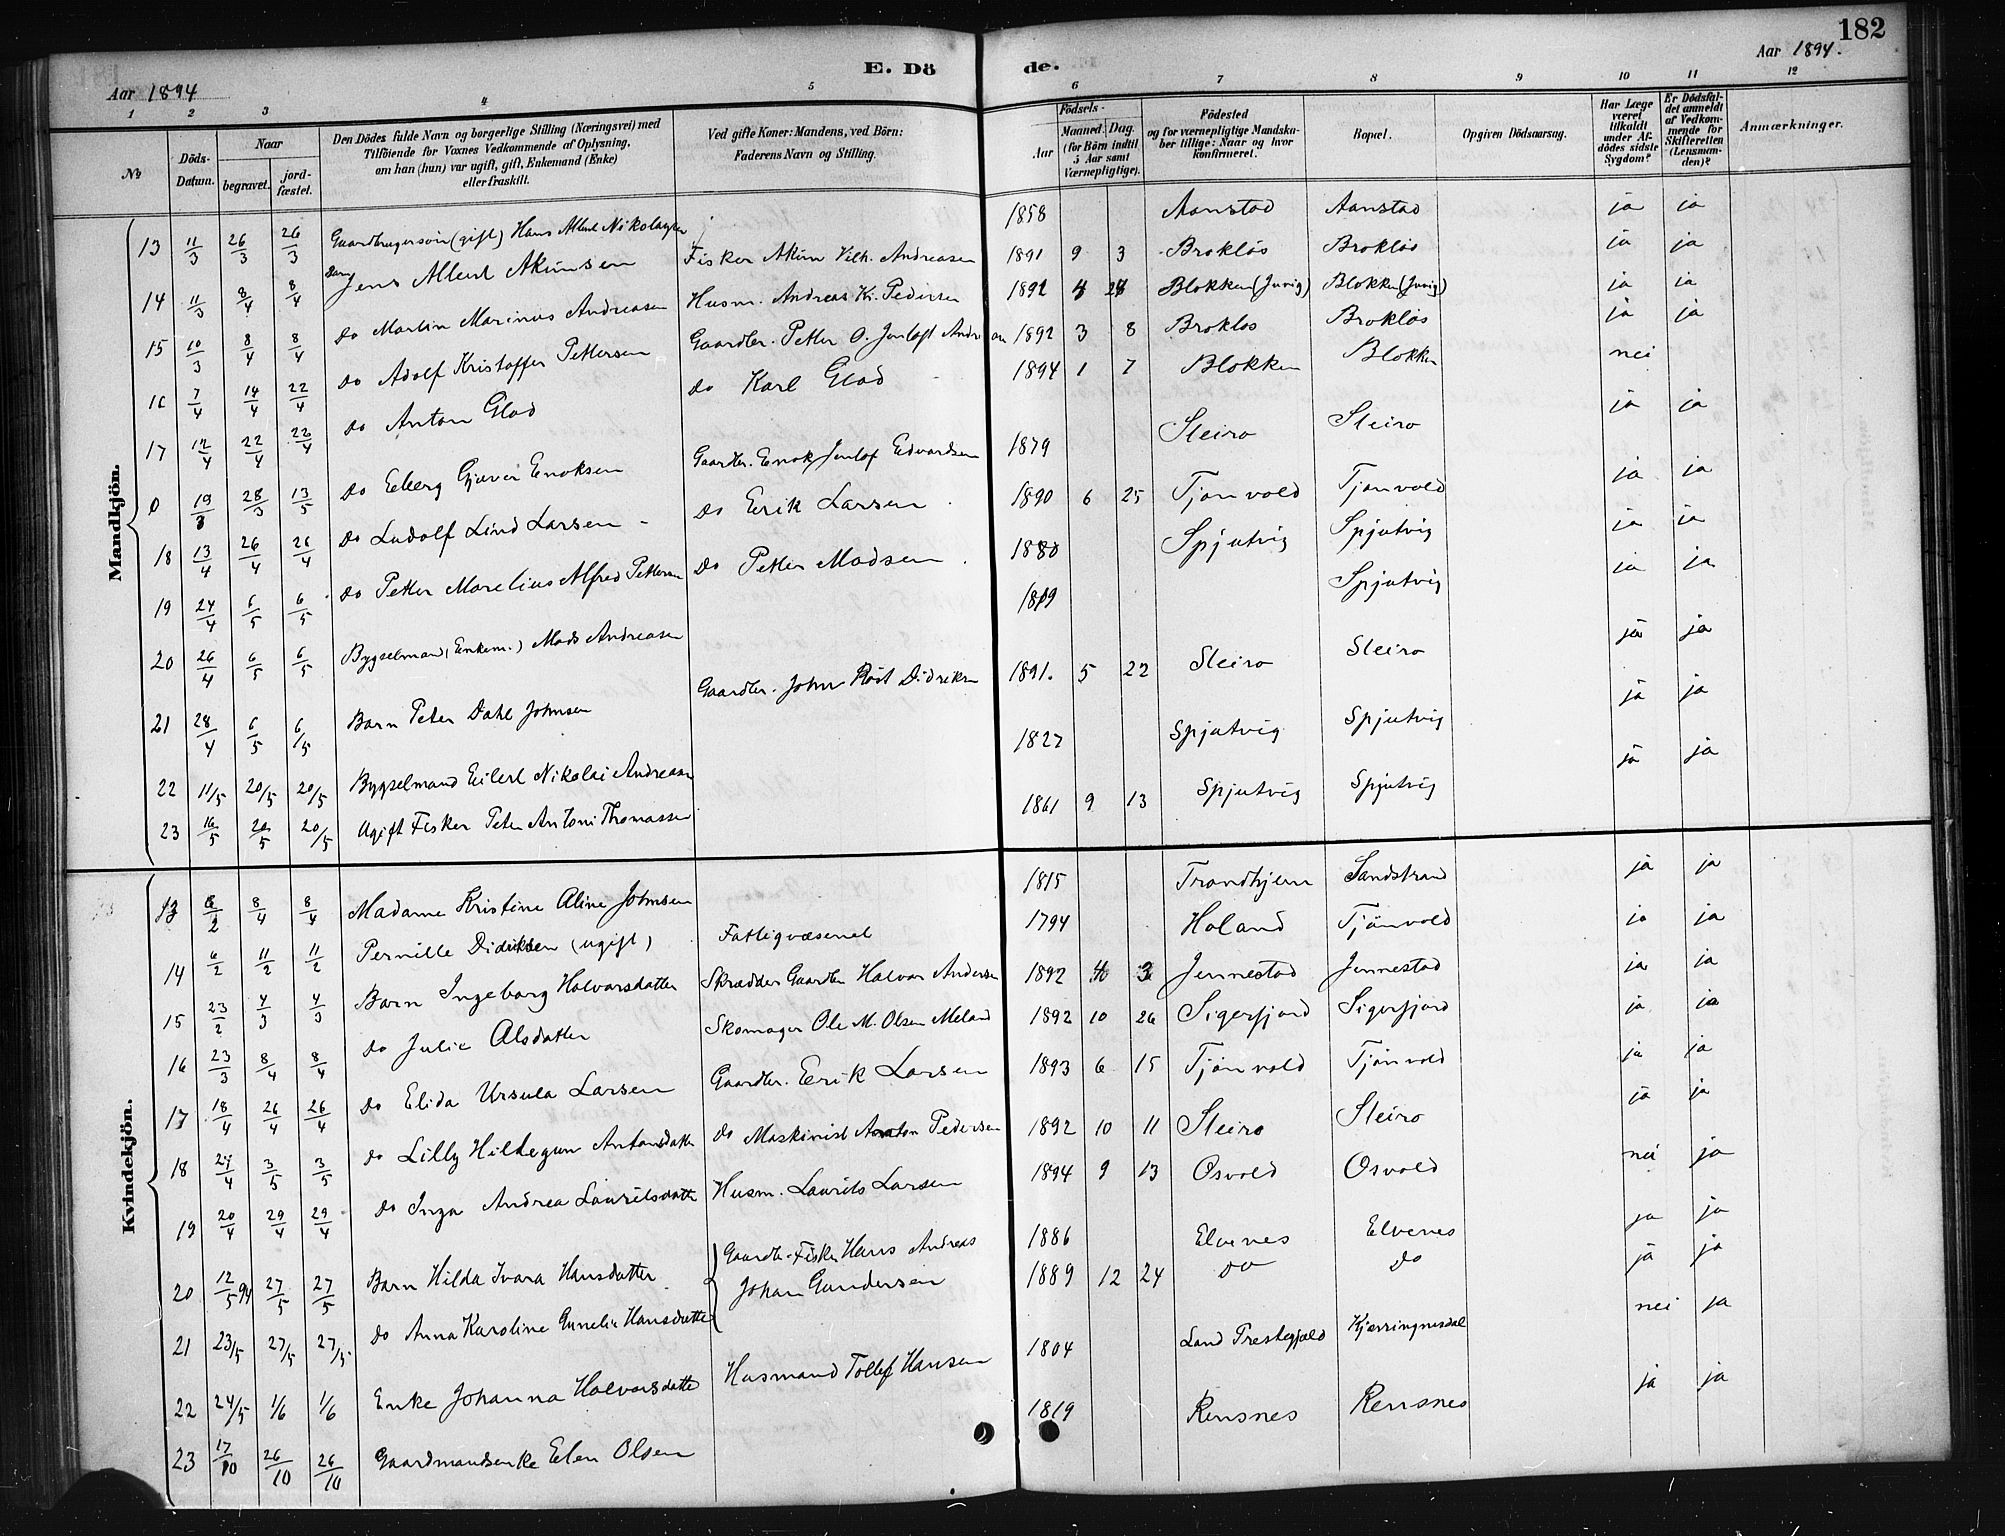 182
E. Dö de.
Aar 1894
Aar 1894.
1 2 3 4 5 6 7 8 9 10 11 12
№
Döds-Datum.
Naar
begravet.
jord-fæstet.
Den Dödes fulde Navn og borgerlige Stilling (Næringsvei) med
Tilföiende for Voxnes Vedkommende af Oplysning,
om han (hun) var ugift, gift, Enkemand (Enke)
eller fraskilt.
Ved gifte Koner: Mandens, ved Börn:
Faderens Navn og Stilling.
Födsels-
Aar
Maaned. Dag.
(for Börn indtil
5 Aar samt
Værnepligtige).
Födested
og for værnepligtige Mandska-
ber tillige: Naar og hvor
konfirmeret.
Bopæl.
Opgiven Dödsaarsag.
Har Læge
været
tilkaldt
under Af-
dödes sidste
Sygdom?
Er Dödsfal-
det anmeldt
af Vedkom-
mende for
Skifteretten
(Lensman-
den)?
Anmærkninger.
Mandkjön.
13 11/3 26/3 26/3 Gaardbrugersøn (gift) Hans Albert Nikolaysen 1858 Aanstad Aanstad ja ja
14 11/3 8/4 8/4 Barn Jens Albert Akimsen Fisker Akim Vilh. Andreasen 1891 9 3 Brokløs Brokløs ja ja
15 10/3 8/4 8/4 do Martin Marinus Andreasen Husm. Andreas Kr. Pedersen 1892 Blokken (Jurig) Blokken (Jurig) ja ja
16 7/4 14/4 22/4 do Adolf Kristoffer Pettersen Gaardbr. Petter O. Jenloft Andr 1892 3 8 Brokløs Brokløs ja ja
17 12/4 22/4 22/4 do Anton Glad do Karl Glad 1894 1 7 Blokken Blokken nei
0 19/3 28/3 13/5 do Edberg Gjæver Enoksen Gaardbr. Enok Jenlof Edvardsen 1879 Sleiro Sleiro ja ja
18 13/4 26/4 26/4 do Ludolf Lind Larsen do Erik Larsen 1890 6 25 Tjønvold Tjønvold ja ja
19 24/4 6/5 6/5 do Petter Marelius Alfred Pettersen do Petter Madsen 1880 Spjutvig Spjutvig ja ja
20 26/4 6/5 6/5 Bygselmand (Enkem.) Mads Andreasen 1819 Spjutvig ja ja
21 28/4 6/5 6/5 Barn Peter Dahl Johnsen Gaardbr. John Røst Didriksen 1891. 5 22 Sleiro Sleiro ja ja
22 11/5 20/5 20/5 Bygselmand Eilert Nikolai Andreasen 1827 Spjutvig Spjutvig ja ja
23 16/5 20/5 20/5 Ugift Fisker Peter Antoni Thomassen 1861 9 13 Spjutvig Spjutvig ja ja
Kvindekjön.
13 8/2 8/4 8/4 Madame Kristine Aline Johnsen 1815 Trondhjem Sandstrand ja ja
14 6/2 11/2 11/2 Pernille Didriksen (ugift) Fattigvæsenet 1794 Holand Tjønvold ja ja
15 23/2 4/3 4/3 Barn Ingeborg Halvorsdatter Skrædder Gaardbr Halvor Andersen 1892 3 Jennestad Jennestad ja ja
16 23/3 8/4 8/4 do Julie Olsdatter Skomager Ole M. Olsen Meland 1892 10 26 Sigerfjord Sigerfjord ja ja
17 18/4 26/4 26/4 do Elida Ursula Larsen Gaardbr. Erik Larsen 1893 6 15 Tjønvold Tjønvold ja ja
18 24/4 3/5 3/5 do Lilly Hildegun Antonsdatter do Maskinist Anton Pedersen 1892 10 11 Sleiro Sleiro ja ja
19 20/4 29/4 29/4 do Inga Andrea Lauritsdatter Husm. Laurits Larsen 1894 9 13 Osvold Osvold nei ja
20 12/5 94 27/5 27/5 Barn Hilda Ivara Hansdatter Gaardbr. Fisker Hans Andreas 1886 Elvenes Elvenes ja ja
21 23/5 27/5 27/5 do Anna Karoline Gunelie Hansdatter Johan Gundersen 1889 12 24 do do ja ja
22 24/5 1/6 1/6 Enke Johanna Halvorsdatter Husmand Tollef Hansen 1804 Land Prestegjeld Kjerringnesdal nei ja
23 17/10 26/10 26/10 Gaardmandsenke Elen Olsen 1819 Rensnes Rensnes ja ja